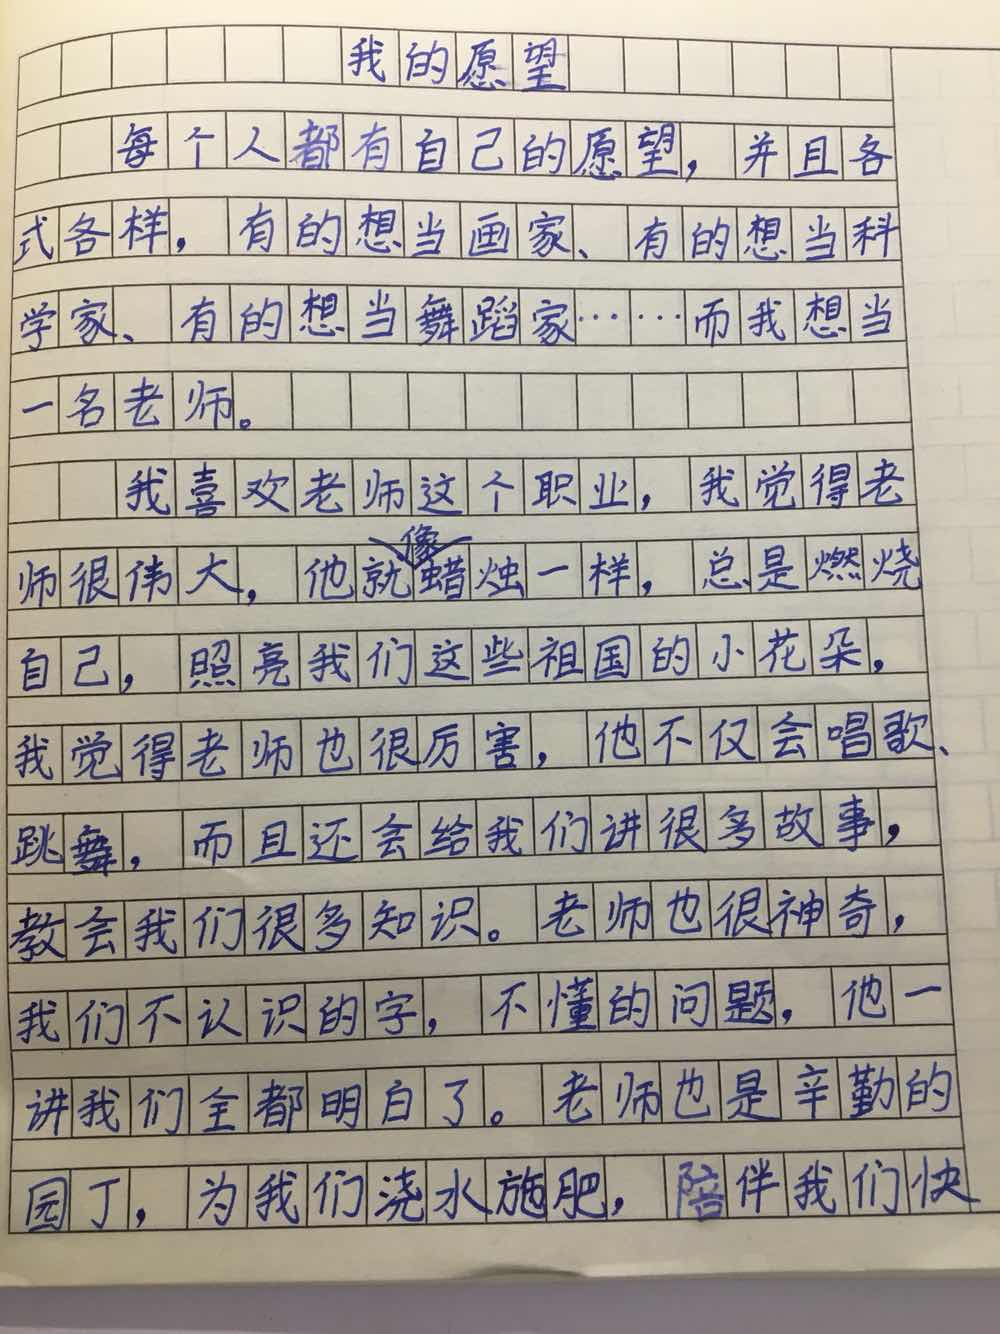 我的愿望
每个人都有自己的愿望，并且各
式各样，有的想当画家、有的想当科
学家、有的想当舞蹈家……而我想当
一名老师。
我喜欢老师这个职业，我觉得老
师很伟大，他就像蜡烛一样，总是燃烧
自己，照亮我们这些祖国的小花朵，
我觉得老师也很厉害，他不仅会唱歌、
跳舞，而且还会给我们讲很多故事，
教会我们很多知识。老师也很神奇，
我们不认识的字，不懂的问题，他一
讲我们全都明白了。老师也是辛勤的
园丁，为我们浇水施肥，陪伴我们快